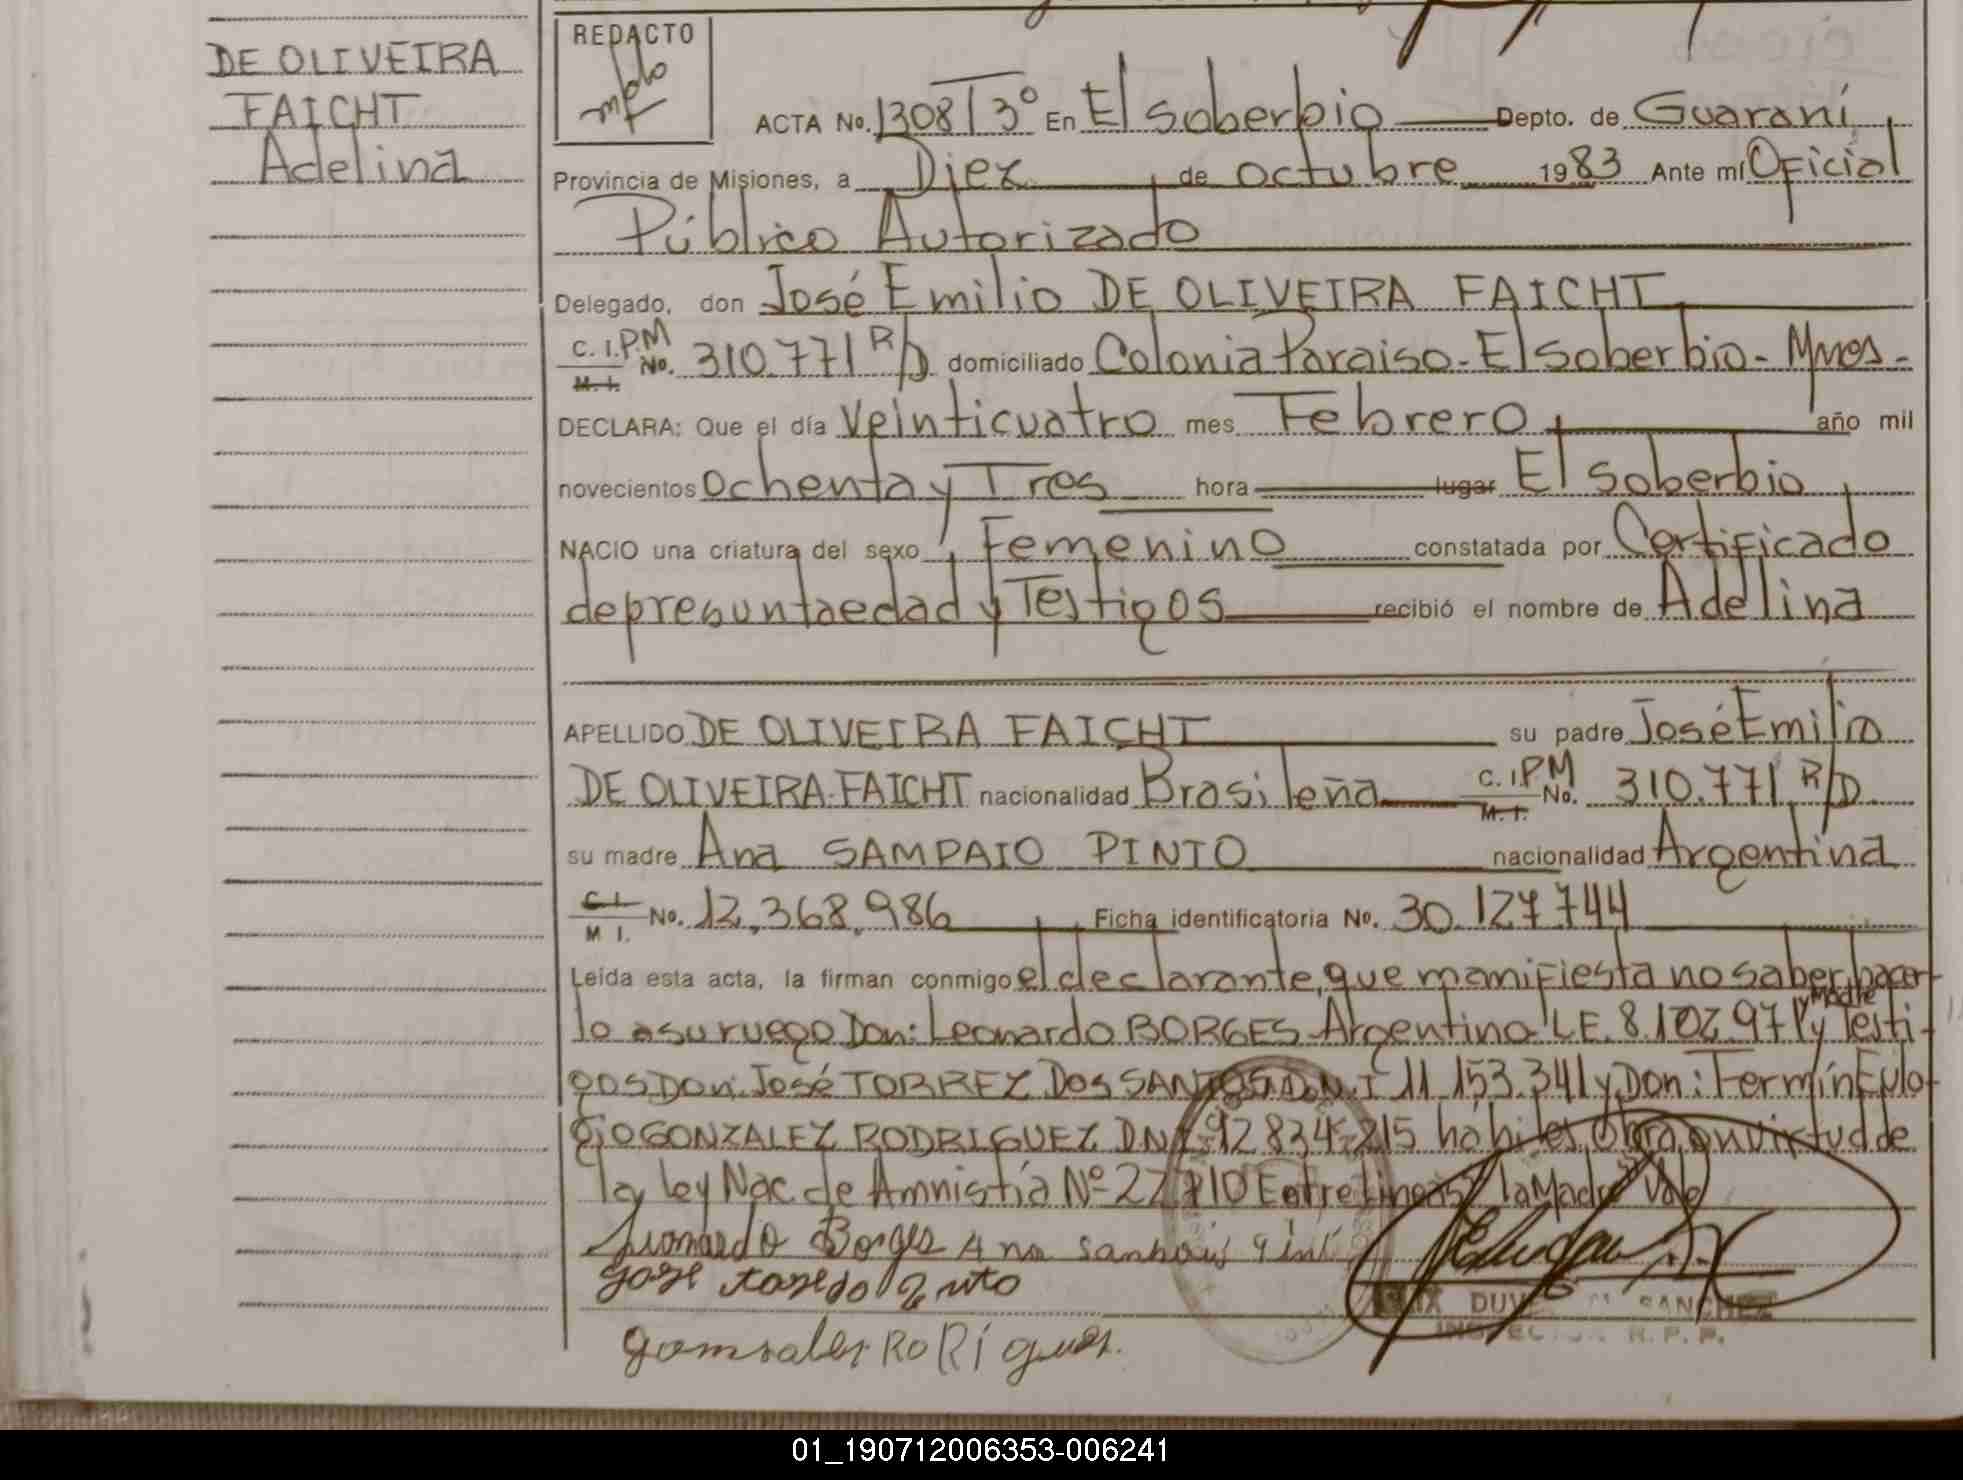 DE OLIVEIRA
FAICHT
Adelina
REDACTO
ACTA No. 1308 T 3° En El soberbio Depto. de Guaraní
Provincia de Misiones, a Diez de octubre 1983 Ante mí Oficial
Público Autorizado
Delegado, don José Emilio DE OLIVEIRA FAICHT
C. I.P.M
M. I. No. 310.771 R/D domiciliado Colonia Paraiso - El Soberbio - Mnes -
DECLARA: Que el día Veinticuatro mes Febrero año mil
novecientos ochenta y Tres hora lugar El Soberbio
NACIO una criatura del sexo Femenino constatada por Certificado
de presuntaedad y Testigos recibió el nombre de Adelina
APELLIDO DE OLIVEIRA FAICHT su padre José Emilio
DE OLIVEIRA FAICHT nacionalidad Brasileña C. I.PM M. I. No. 310.771 R/D
su madre Ana SAMPAIO PINTO nacionalidad Argentina
C. I. M I. No. 12.368.986 Ficha identificatoria No. 30.127.744
Leída esta acta, la firman conmigo el declarante, que manifiesta no saber hacer-
lo a su ruego Don: Leonardo BORGES Argentino L.E. 8.102.971 y Madre y Testi-
gos Don: José TORREZ Dos SANTOS D.N.I 11.153.341 y Don: Fermín Eulo-
gio GONZALEZ RODRIGUEZ DNI 92834.215 hábiles, Obra en virtud de
la Ley Nac. de Amnistía Nº 22710 Entre lineas, la Madre Vale
Leonardo Borges Ana
Jose
gomsales RoRígues.
DUVE SANCHEZ
INSPECTOR R. P. P.
01_190712006353-006241